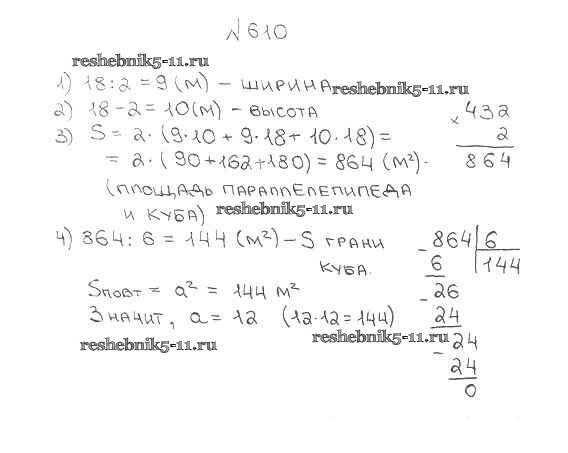 №610
reshebnik5-11.ru
1) 18:2=9(м) – ширина reshebnik5-11.ru
2) 18–2=10(м) – высота
3) S = 2·(9·10+9·18+10·18)=
= 2·(90+162+180)=864(м²).
(площадь параллелепипеда
и куба) reshebnik5-11.ru
× 432
2
864
4) 864:6=144(м²) – S грани
куба.
Sповт = a² = 144 м²
Значит, a=12 (12·12=144)
reshebnik5-11.ru
reshebnik5-11.ru
– 864 | 6
6 | 144
– 26
24
– 24
24
0